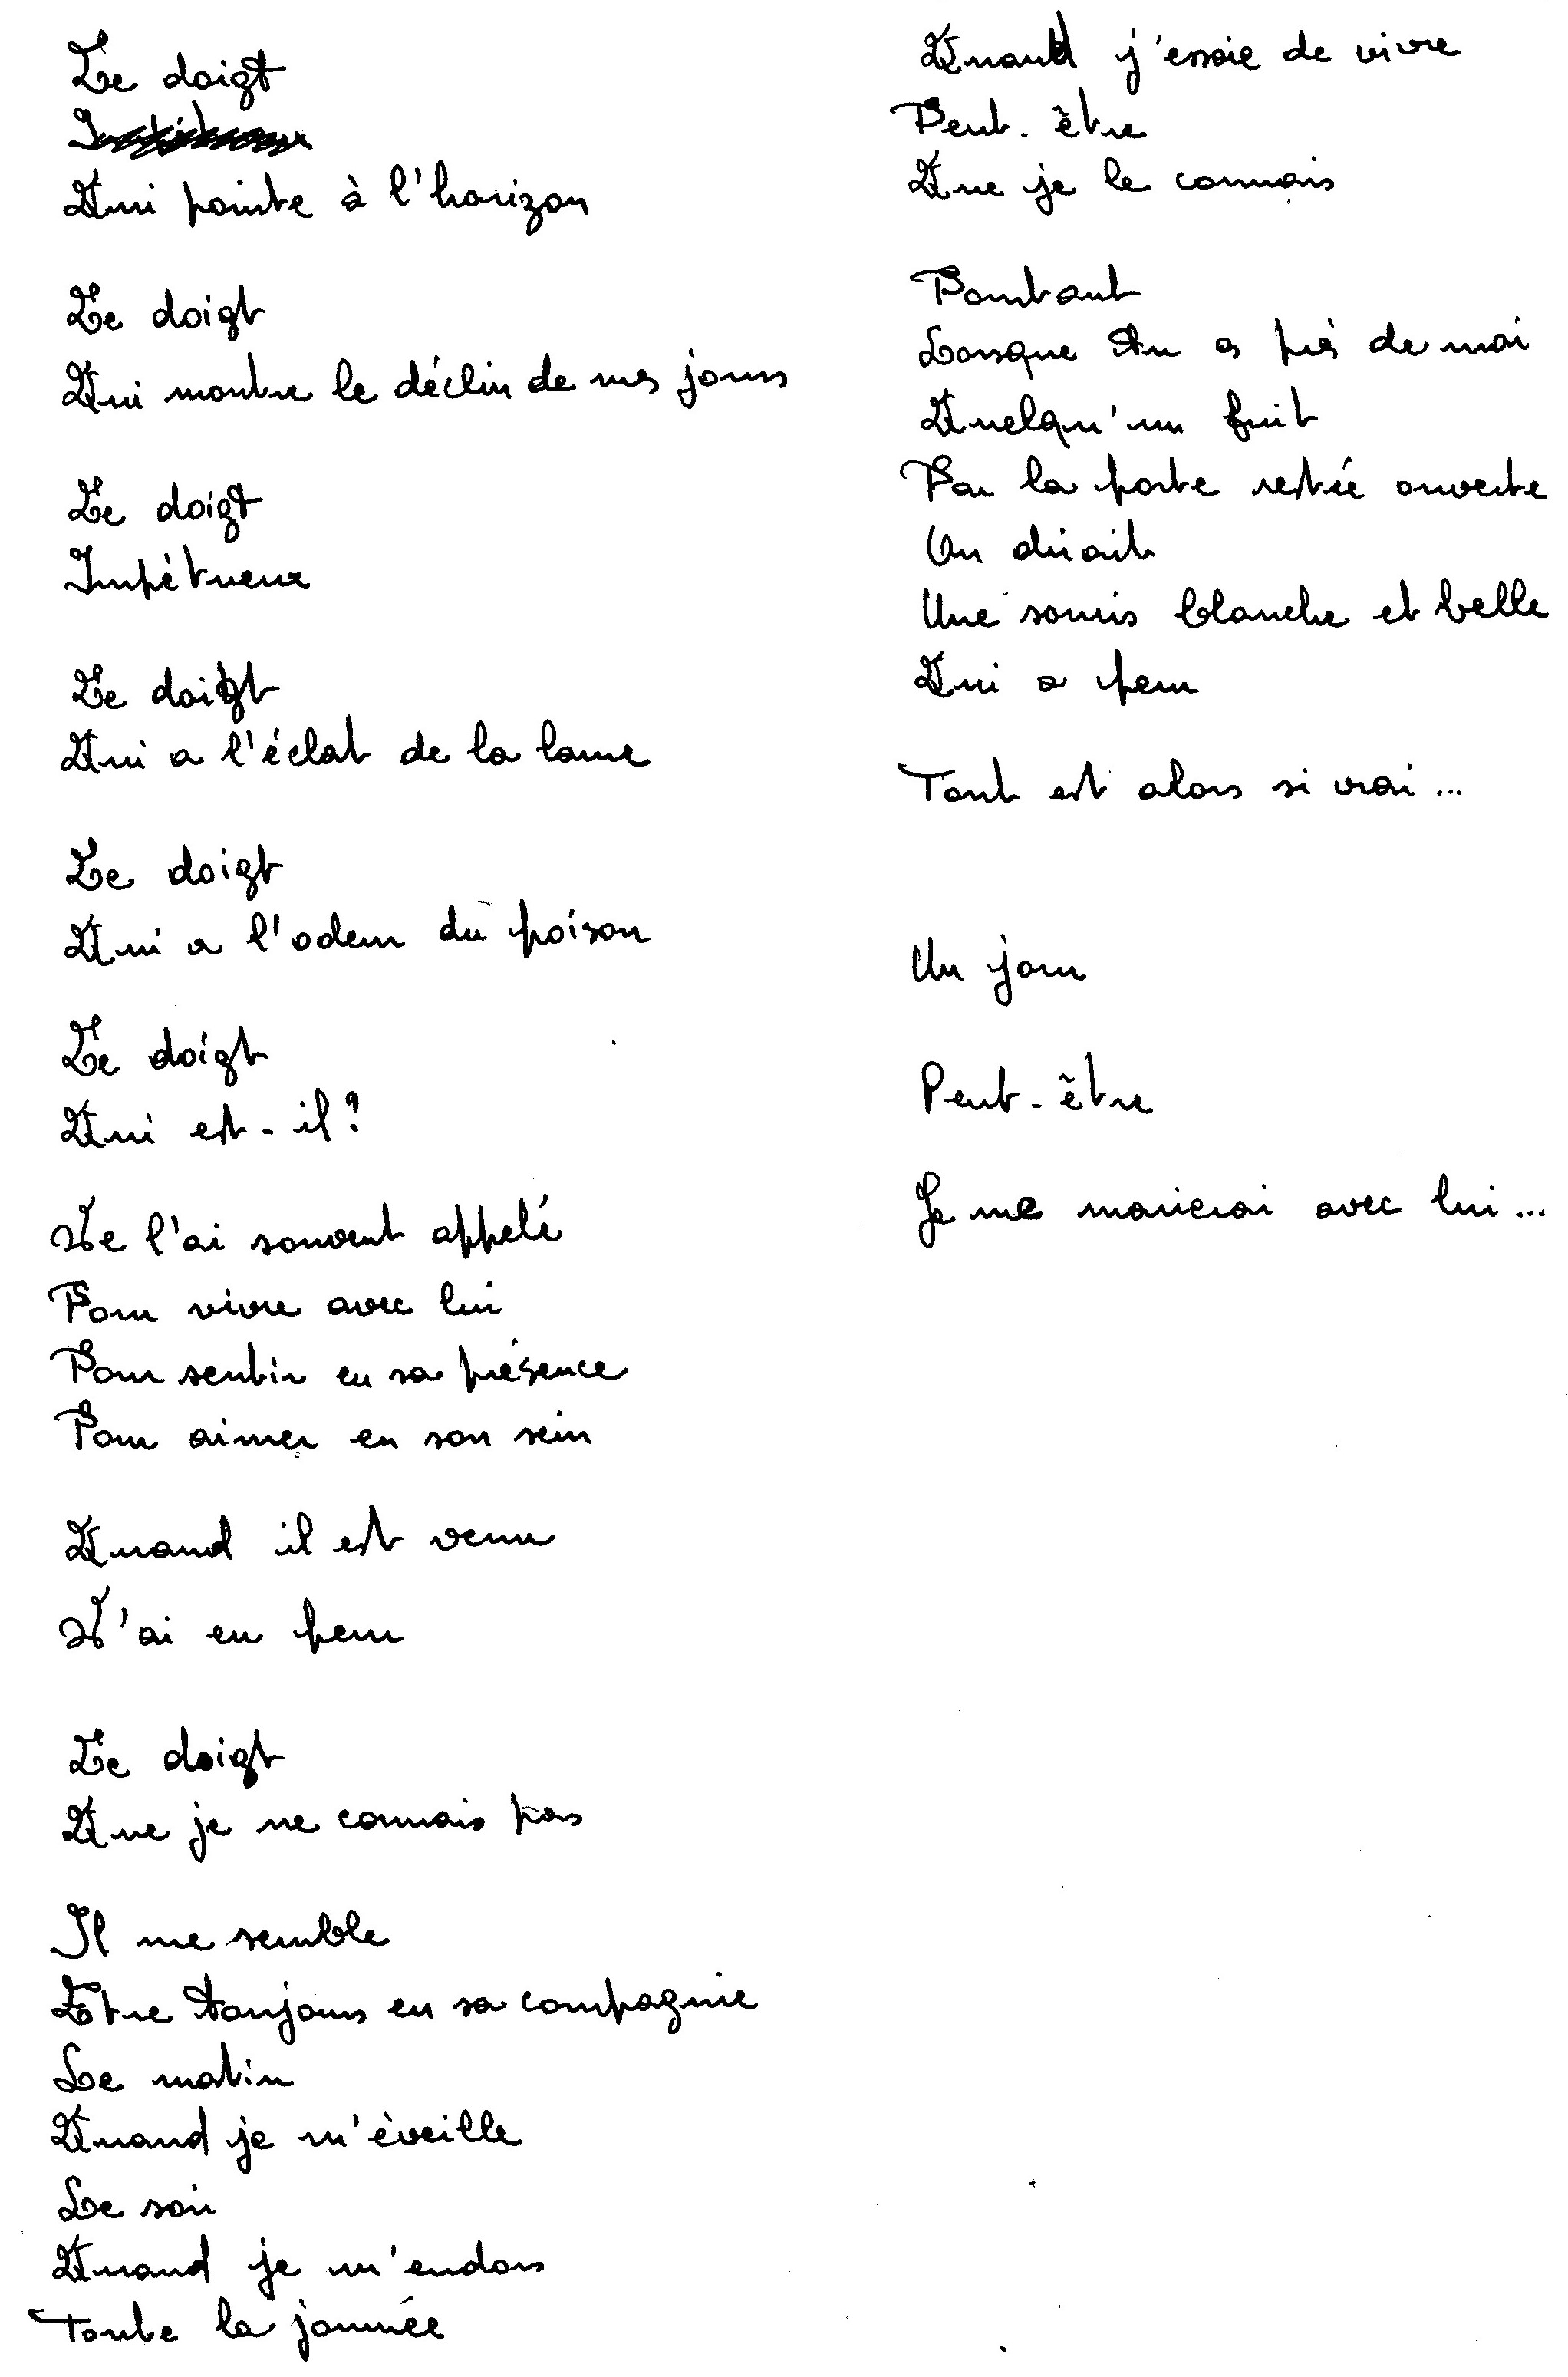 Le doigt
Qui pointe à l'horizon
Le doigt
Qui montre le déclin de mes jours
Le doigt
Impétueux
Le doigt
Qui a l'éclat de la lame
Le doigt
Qui a l'odeur du poison
Le doigt
Qui est-il?
Je l'ai souvent appelé
Pour vivre avec lui
Pour sentir en sa présence
Pour aimer en son sein
Quand il est venu
J'ai eu peur
Le doigt
Que je ne connais pas
Il me semble
Etre toujours en sa compagnie
Le matin
Quand je m'éveille
Le soir
Quand je m'endors
Toute la journée
Quand j'essaie de vivre
Peut-être
Que je le connais
Pourtant
Lorsque tu es près de moi
Quelqu'un fuit
Par la porte restée ouverte
On dirait
Une souris blanche et belle
Qui a peur
Tout est alors si vrai...
Un jour
Peut-être
Je me marierai avec lui...